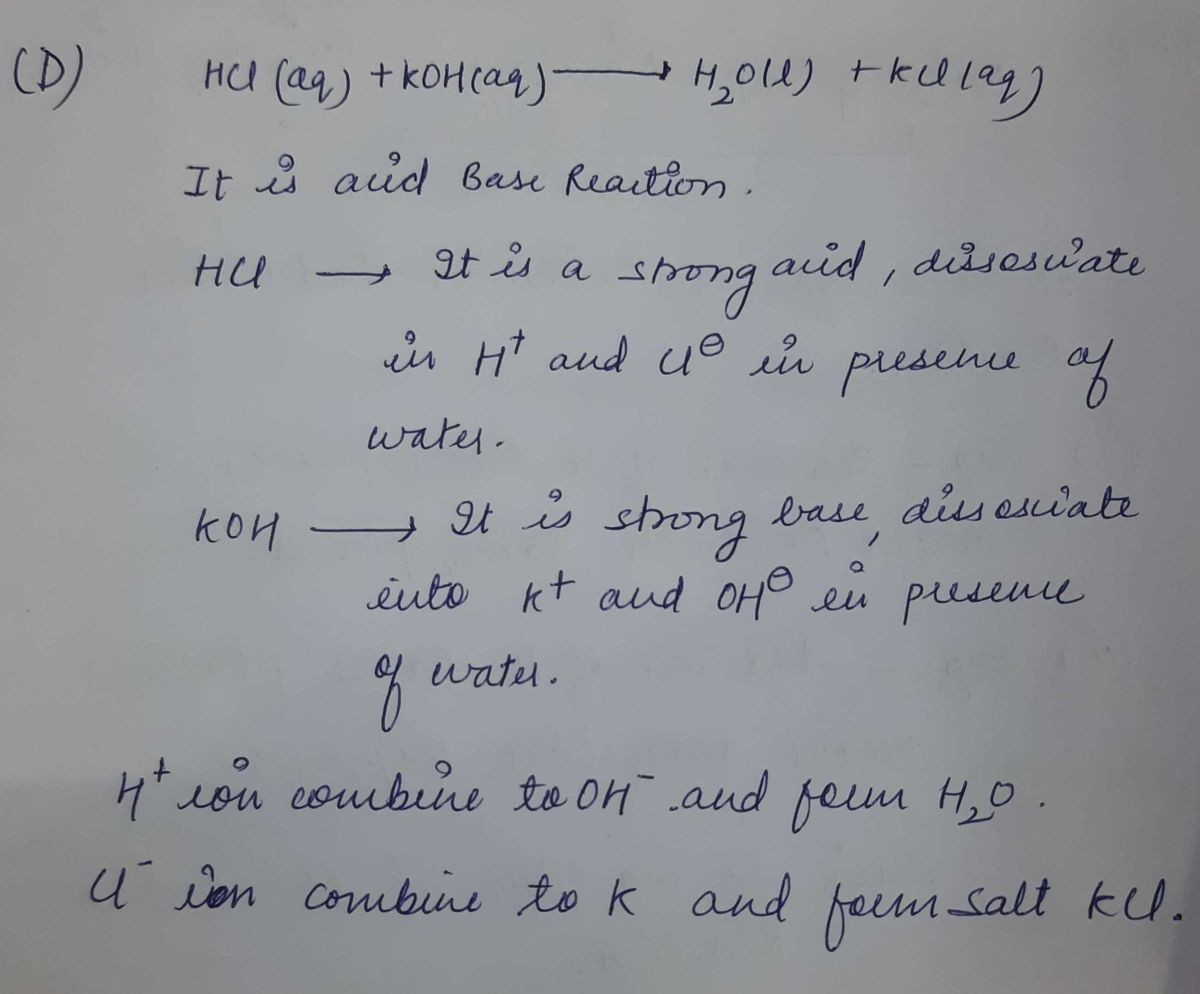 (D) HCl (aq) + KOH(aq) ⟶ H₂O(l) + KCl(aq)
It is acid Base Reaction.
HCl → It is a strong acid, dissosciate
in H⁺ and Cl⊖ in presence of
water.
KOH → It is strong base, dissosciate
into K⁺ and OH⊖ in presence
of water.
H⁺ ion combine to OH⁻ and form H₂O.
Cl⁻ ion combine to K and form salt KCl.